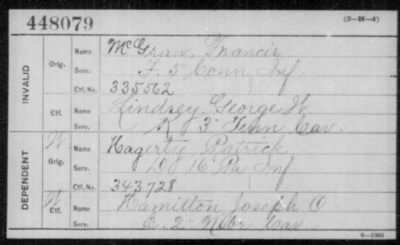 448079
(3—H—4)
INVALID
Orig.
Name McGraw, Francis
Serv. F. 5 Conn Inf
Ctf. No. 335562
Ctf.
Name Lindsey, George W.
Serv. 3" Tenn Cav.
DEPENDENT
W Orig.
Name Hagerty Patrick
Serv. 16 Pa Inf
Ctf. No. 343728
W Ctf.
Name Hamilton, Joseph O
Serv. E. 2" Nebr Cav